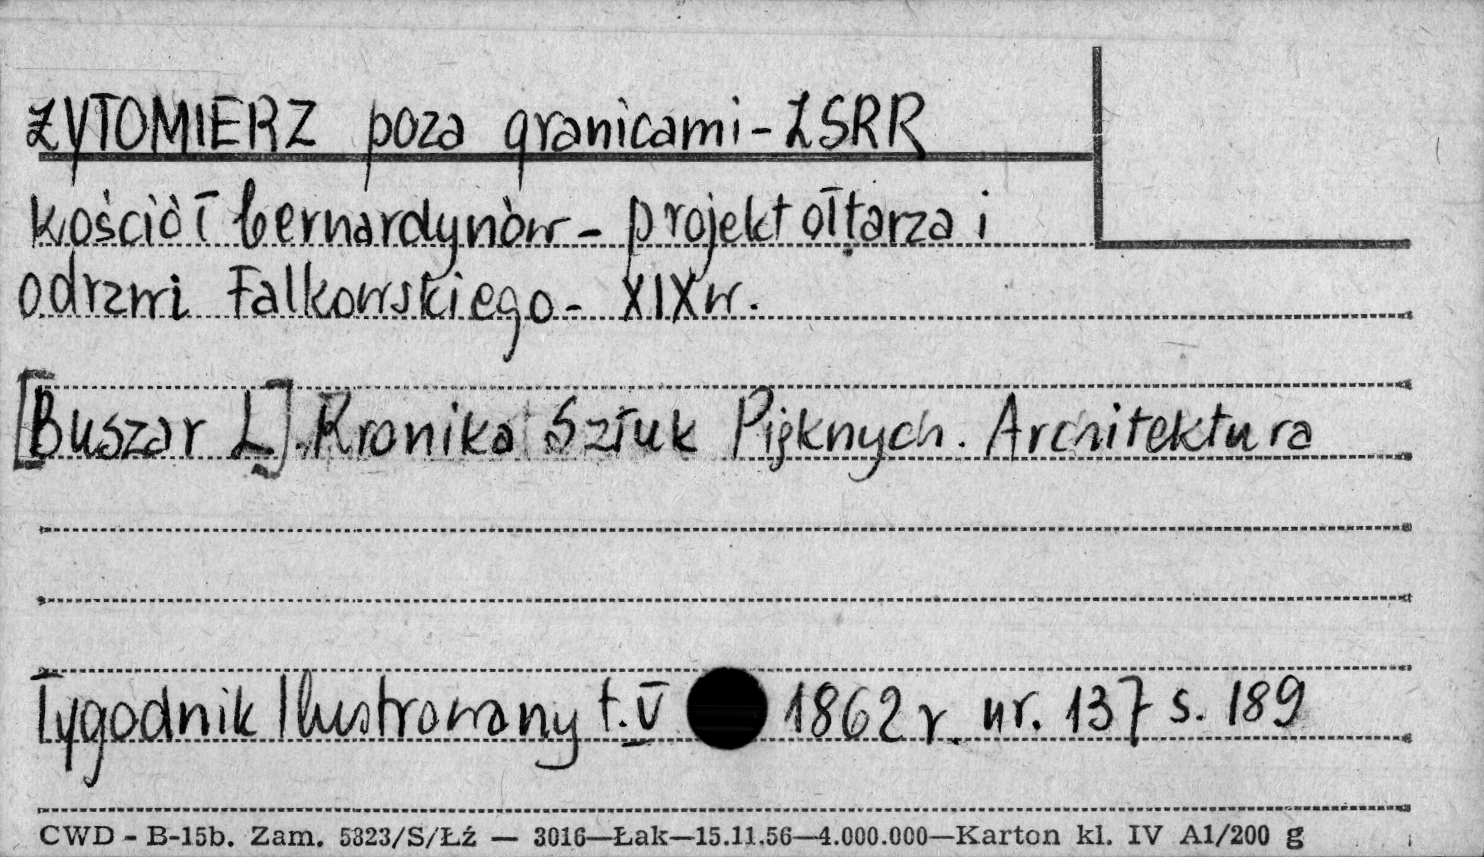 ŻYTOMIERZ poza granicami - ZSRR
kościół bernardynów - projekt ołtarza i
odrzwi Falkowskiego - XIX w.
[Buszar L]. Kronika Sztuk Pięknych. Architektura
Tygodnik Ilustrowany t. V 1862 r. nr. 137 s. 189
CWD - B-15b. Zam. 5323/S/Łź — 3016—Łak—15.11.56—4.000.000—Karton kl. IV A1/200 g